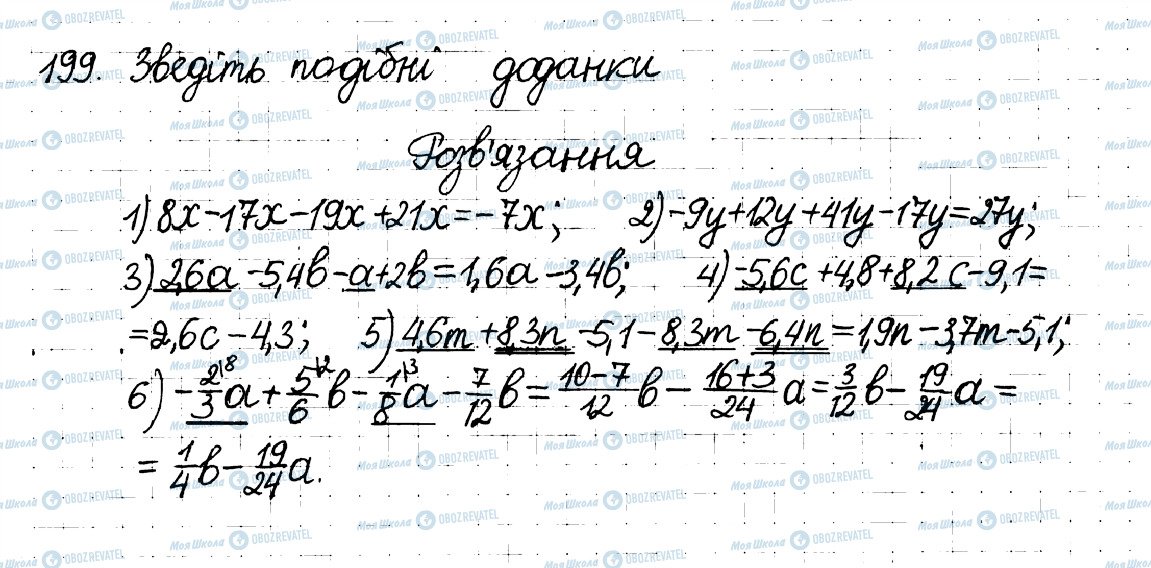 199. Зведіть подібні доданки
Розв'язання
1) 8x-17x-19x+21x=-7x; 2) -9y+12y+41y-17y=27y;
3) 2,6a-5,4b-a+2b=1,6a-3,4b; 4) -5,6c+4,8+8,2c-9,1=
=2,6c-4,3; 5) 4,6m+8,3n-5,1-8,3m-6,4n=1,9n-3,7m-5,1;
6) -2/3a+5/6b-1/8a-7/12b=(10-7)/12b-(16+3)/24a=3/12b-19/24a=
=1/4b-19/24a.